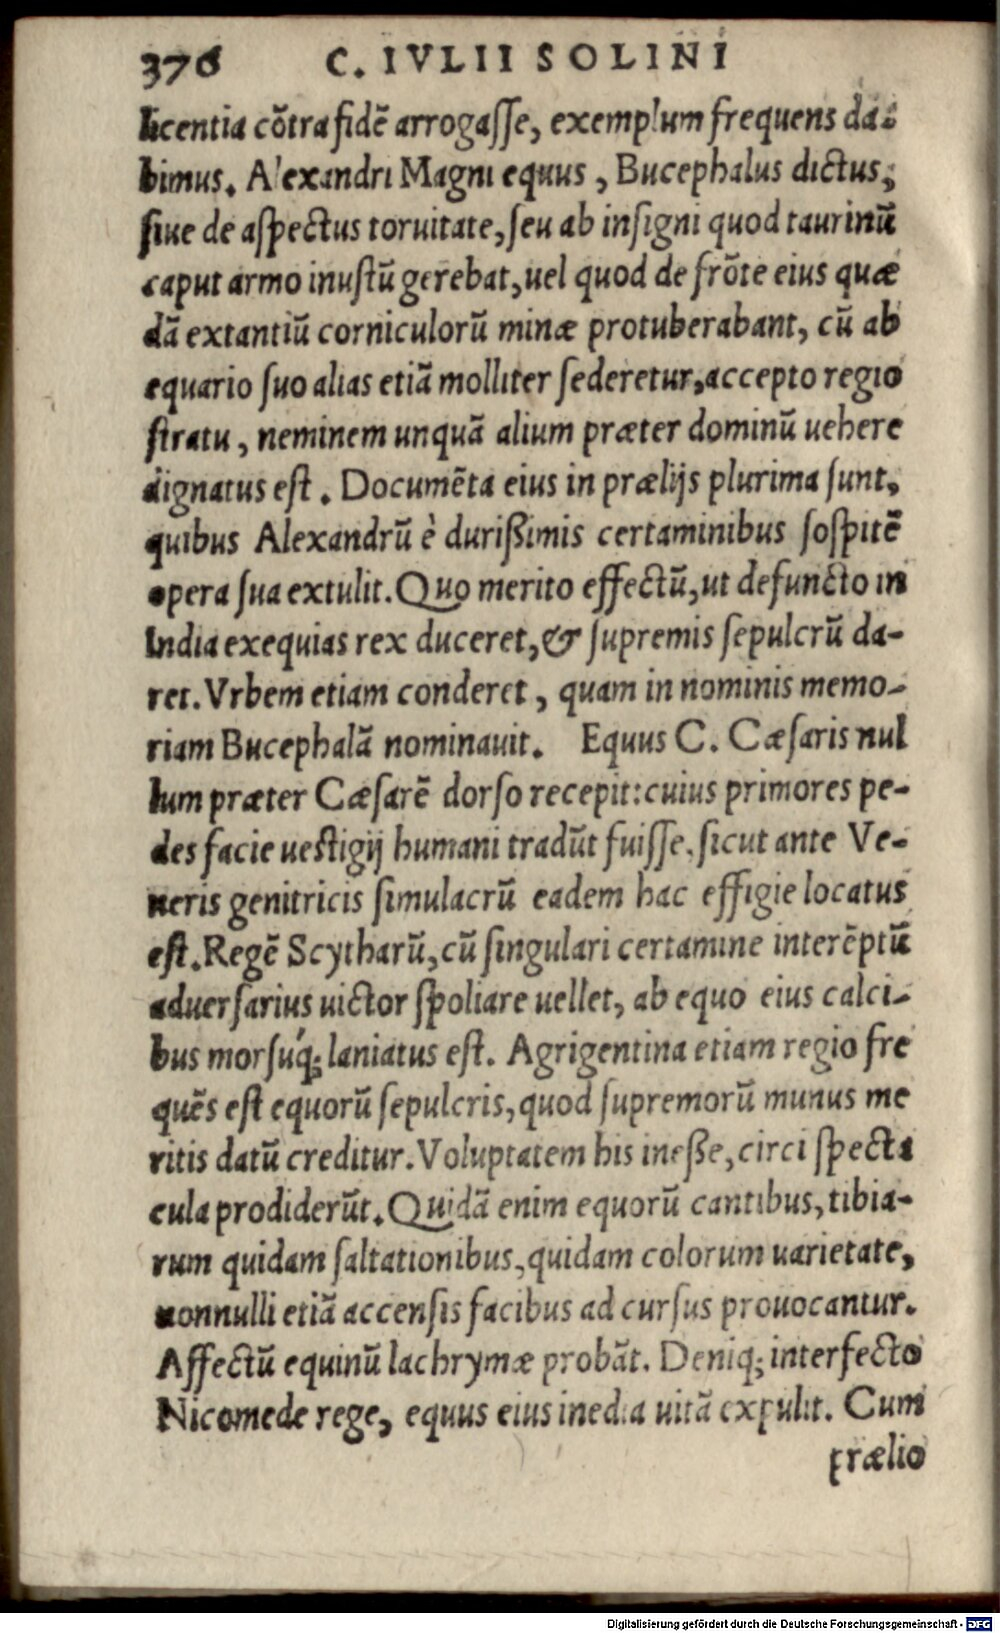 376 C. IVLII SOLINI
licentia cõtra fidẽ arrogaſſe, exemplum frequens da-
bimus. Alexandri Magni equus, Bucephalus dictus,
ſiue de aſpectus toruitate, ſeu ab inſigni quod taurinũ
caput armo inuſtũ gerebat, uel quod de frõte eius quæ
dã extantiũ corniculorũ minæ protuberabant, cũ ab
equario ſuo alias etiã molliter ſederetur, accepto regio
ſtratu, neminem unquã alium præter dominũ uehere
dignatus eſt. Documẽta eius in prælijs plurima ſunt,
quibus Alexandrũ è durißimis certaminibus ſoſpitẽ
opera ſua extulit. Quo merito effectũ, ut defuncto in
India exequias rex duceret, & ſupremis ſepulcrũ da-
ret. Vrbem etiam conderet, quam in nominis memo-
riam Bucephalã nominauit. Equus C. Cæſaris nul
lum præter Cæſarẽ dorſo recepit: cuius primores pe-
des facie ueſtigij humani tradũt fuiſſe, ſicut ante Ve-
neris genitricis ſimulacrũ eadem hac effigie locatus
eſt. Regẽ Scytharũ, cũ ſingulari certamine interẽptũ
aduerſarius uictor ſpoliare uellet, ab equo eius calci-
bus morſuq́; laniatus eſt. Agrigentina etiam regio fre
quẽs eſt equorũ ſepulcris, quod ſupremorũ munus me
ritis datũ creditur. Voluptatem his ineße, circi ſpecta
cula prodiderũt. Quidã enim equorũ cantibus, tibia-
rum quidam ſaltationibus, quidam colorum uarietate,
nonnulli etiã accenſis facibus ad curſus prouocantur.
Affectũ equinũ lachrymæ probãt. Deniq; interfecto
Nicomede rege, equus eius inedia uitã expulit. Cum
prælio
Digitalisierung gefördert durch die Deutsche Forschungsgemeinschaft - DFG